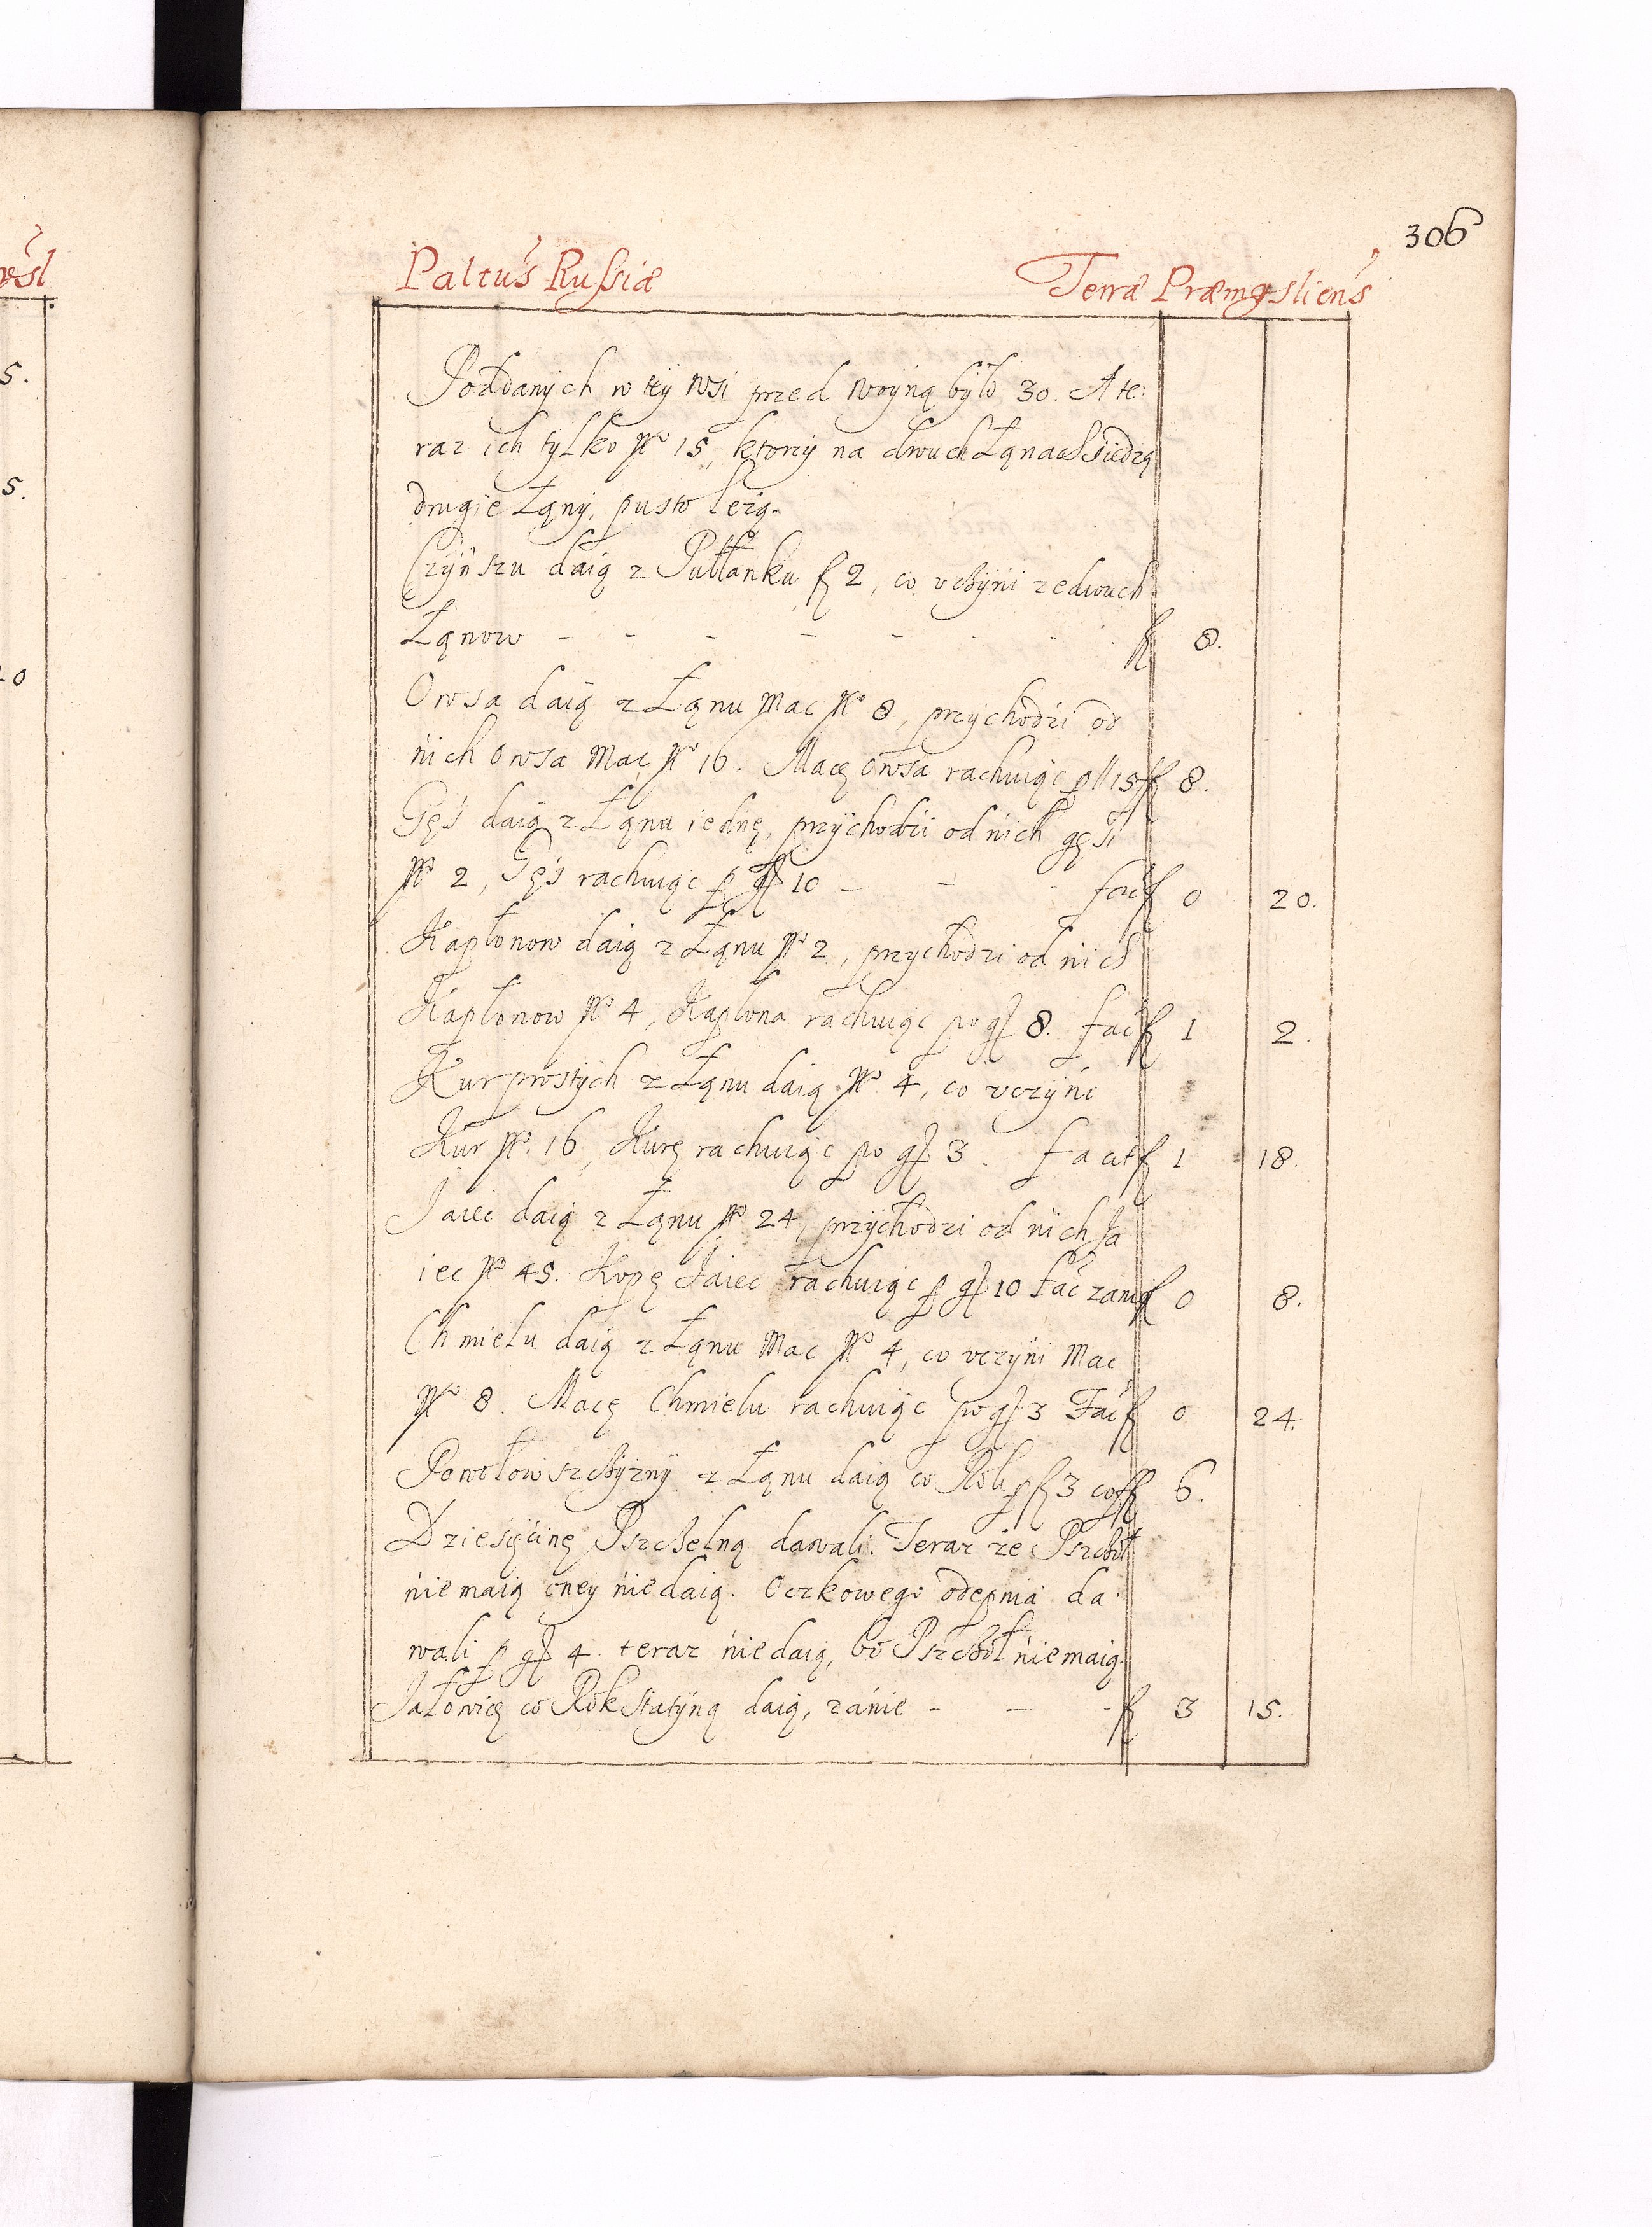 306
Paltus Russiæ Terræ Præmysliens
Poddanych w tey wsi przed woyną było 30. A te:
raz ich tylko No 15, ktorzy na dwuch Łąnach Siedzą
drugie Łąny, pusto leżą.
Czynszu daią z Pułłanku f 2, co vczyni ze dwuch
Łąnow - - - - - - - f 8.
Owsa daią z Łąnu Mac No 8, przychodzi od
nich Owsa Mac No 16. Macę Owsa rachuiąc p 15 f 8.
Gęś daią z Łąnu iednę, przychodzi od nich gęsi
No 2, Gęś rachuiąc p gr 10 - - - faci f 0 20.
Kapłonow daią z Łąnu No 2, przychodzi od nich
Kapłonow No 4, Kapłona rachuiąc po gr 8. faci f 1 2.
Kur prostych z Łąnu daią No 4, co vczyni
Kur No 16, Kurę rachuiąc po gr 3. facit f 1 18.
Jaiec daią z Łąnu No 24, przychodzi od nich Ja
iec No 45. Kopę Jaiec rachuiąc p gr 10 fac zanie f 0 8.
Chmielu daią z Łąnu Mac No 4, co vczyni Mac
No 8. Macę Chmielu rachuiąc po gr 3 Faci f 0 24.
Powołowszczyzny z Łąnu daią co Rok p f 3 co f 6.
Dziesięcinę Pszczelną dawali. Teraz że Pszczoł
nie maią oney nie daią. Oczkowego odepnia da
wali p gr 4. teraz nie daią, bo Pszczoł nie maią.
Jałowicę co Rok Statyną daią, zanie - - - f 3 15.
5.
5.
0